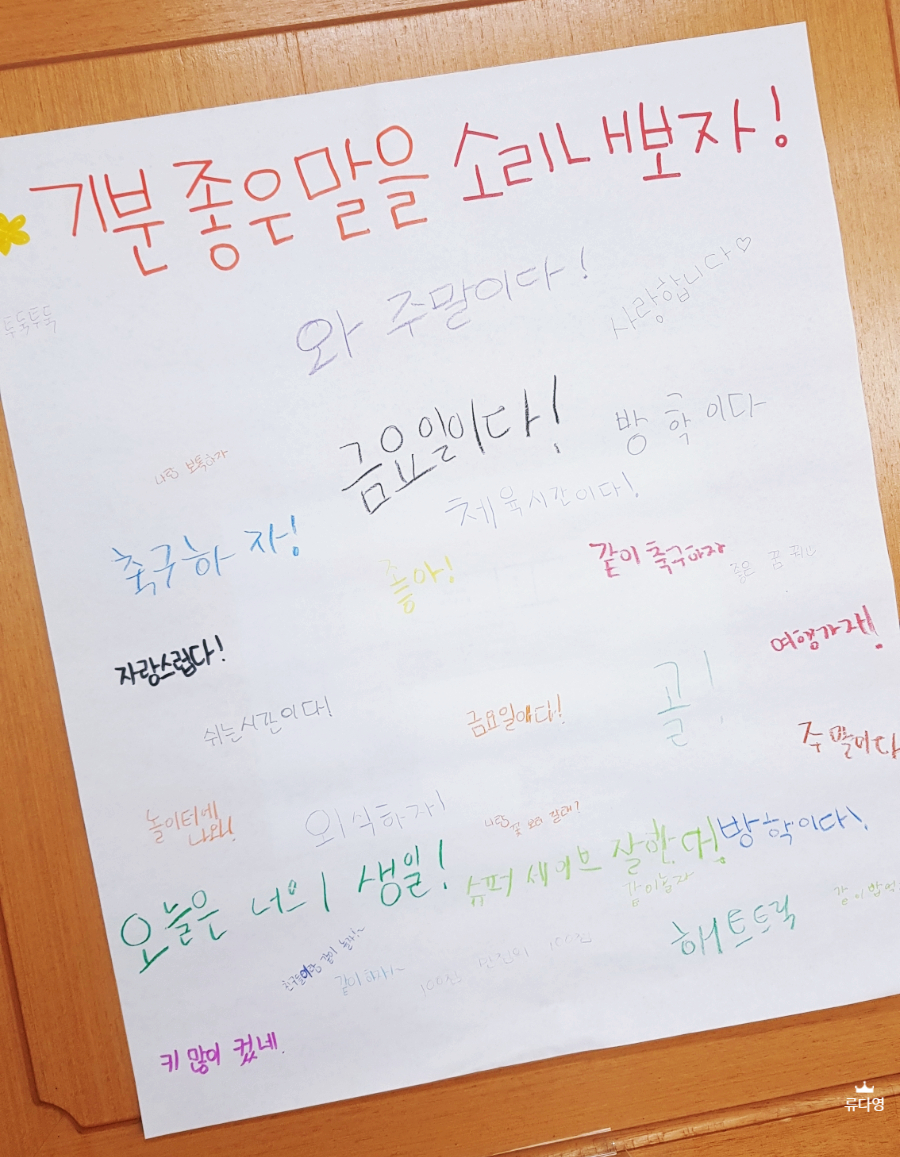 기분 좋은 말을 소리내보자!
와 주말이다!
사랑합니다♡
토독토독
금요일이다!
방학이다
체육시간이다!
축구하자!
좋아!
같이 축구하자
좋은 꿈 꿔
자랑스럽다!
여행가재!
골!
쉬는시간이다!
금요일이다!
주말이다
놀이터에
나와!
외식하자!
방학이다!
슈퍼 세이브 잘한다!
오늘은 너의 생일!
같이놀자
해트트릭
친구들이랑 같이 놀자~
같이하자~
100점 만점의 100점
키 많이 컸네.
류다영